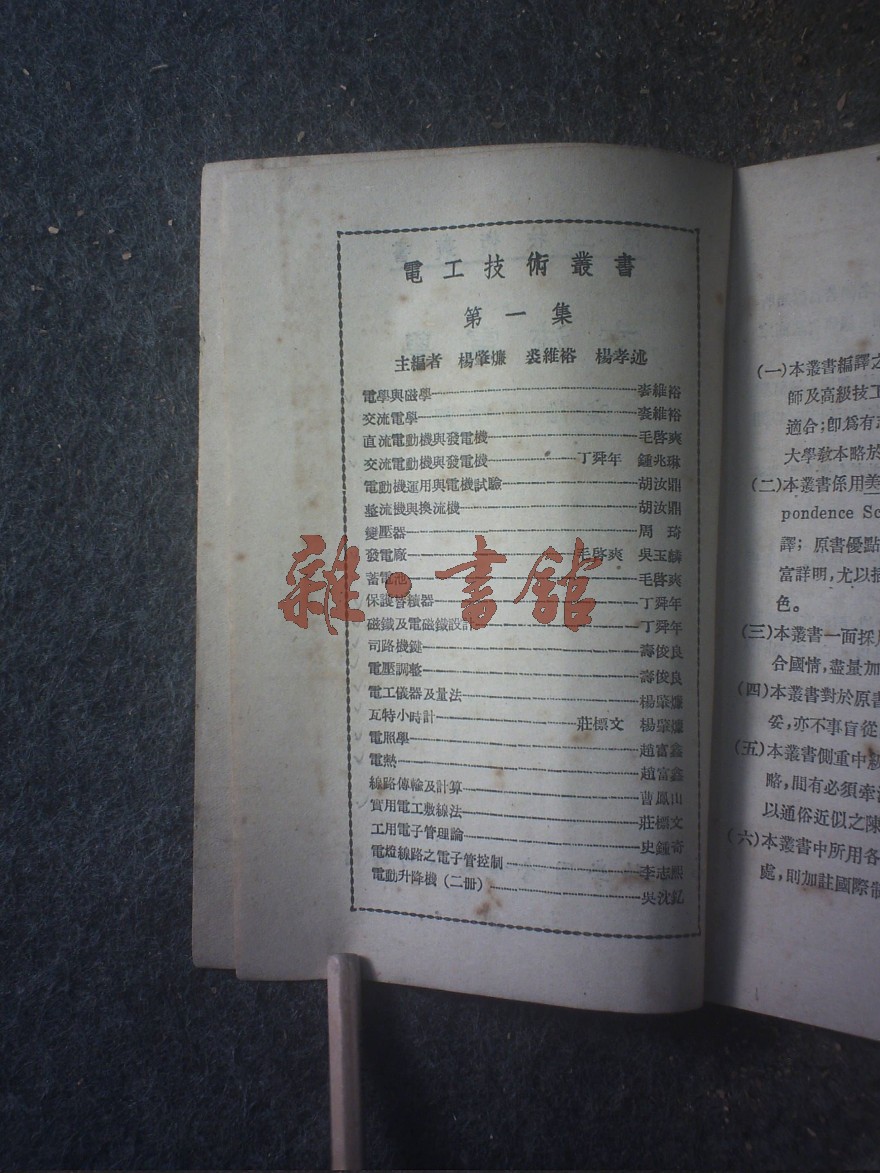 電工技術叢書
第一集
主編者 楊肇燫 裘維裕 楊孝述
電學與磁學 裘維裕
交流電學 裘維裕
直流電動機與發電機 毛啓爽
交流電動機與發電機 丁舜年 鍾兆琳
電動機運用與電機試驗 胡汝鼎
整流機與換流機 胡汝鼎
變壓器 周琦
發電廠 毛啓爽 吳玉麟
蓄電池 毛啓爽
保護替續器 丁舜年
磁鐵及電磁鐵設計 丁舜年
司路機鍵 壽俊良
電壓調整 壽俊良
電工儀器及量法 楊肇燫
瓦特小時計 莊標文 楊肇燫
電照學 趙富鑫
電熱 趙富鑫
線路傳輸及計算 曹鳳山
實用電工敷線法 莊標文
工用電子管理論 史鍾奇
電燈線路之電子管控制 李志熙
電動升降機（二冊） 吳沈釔
雜·書館
(一)本叢書編譯之
師及高級技工
適合；即爲有志
大學敎本略於
(二)本叢書係用美
pondence Sc
譯；原書優點
富詳明，尤以插
色。
(三)本叢書一面採用
合國情，盡量加
(四)本叢書對於原書
妥，亦不事盲從
(五)本叢書側重中級
略，間有必須牽涉
以通俗近似之陳
(六)本叢書中所用各
處，則加註國際制